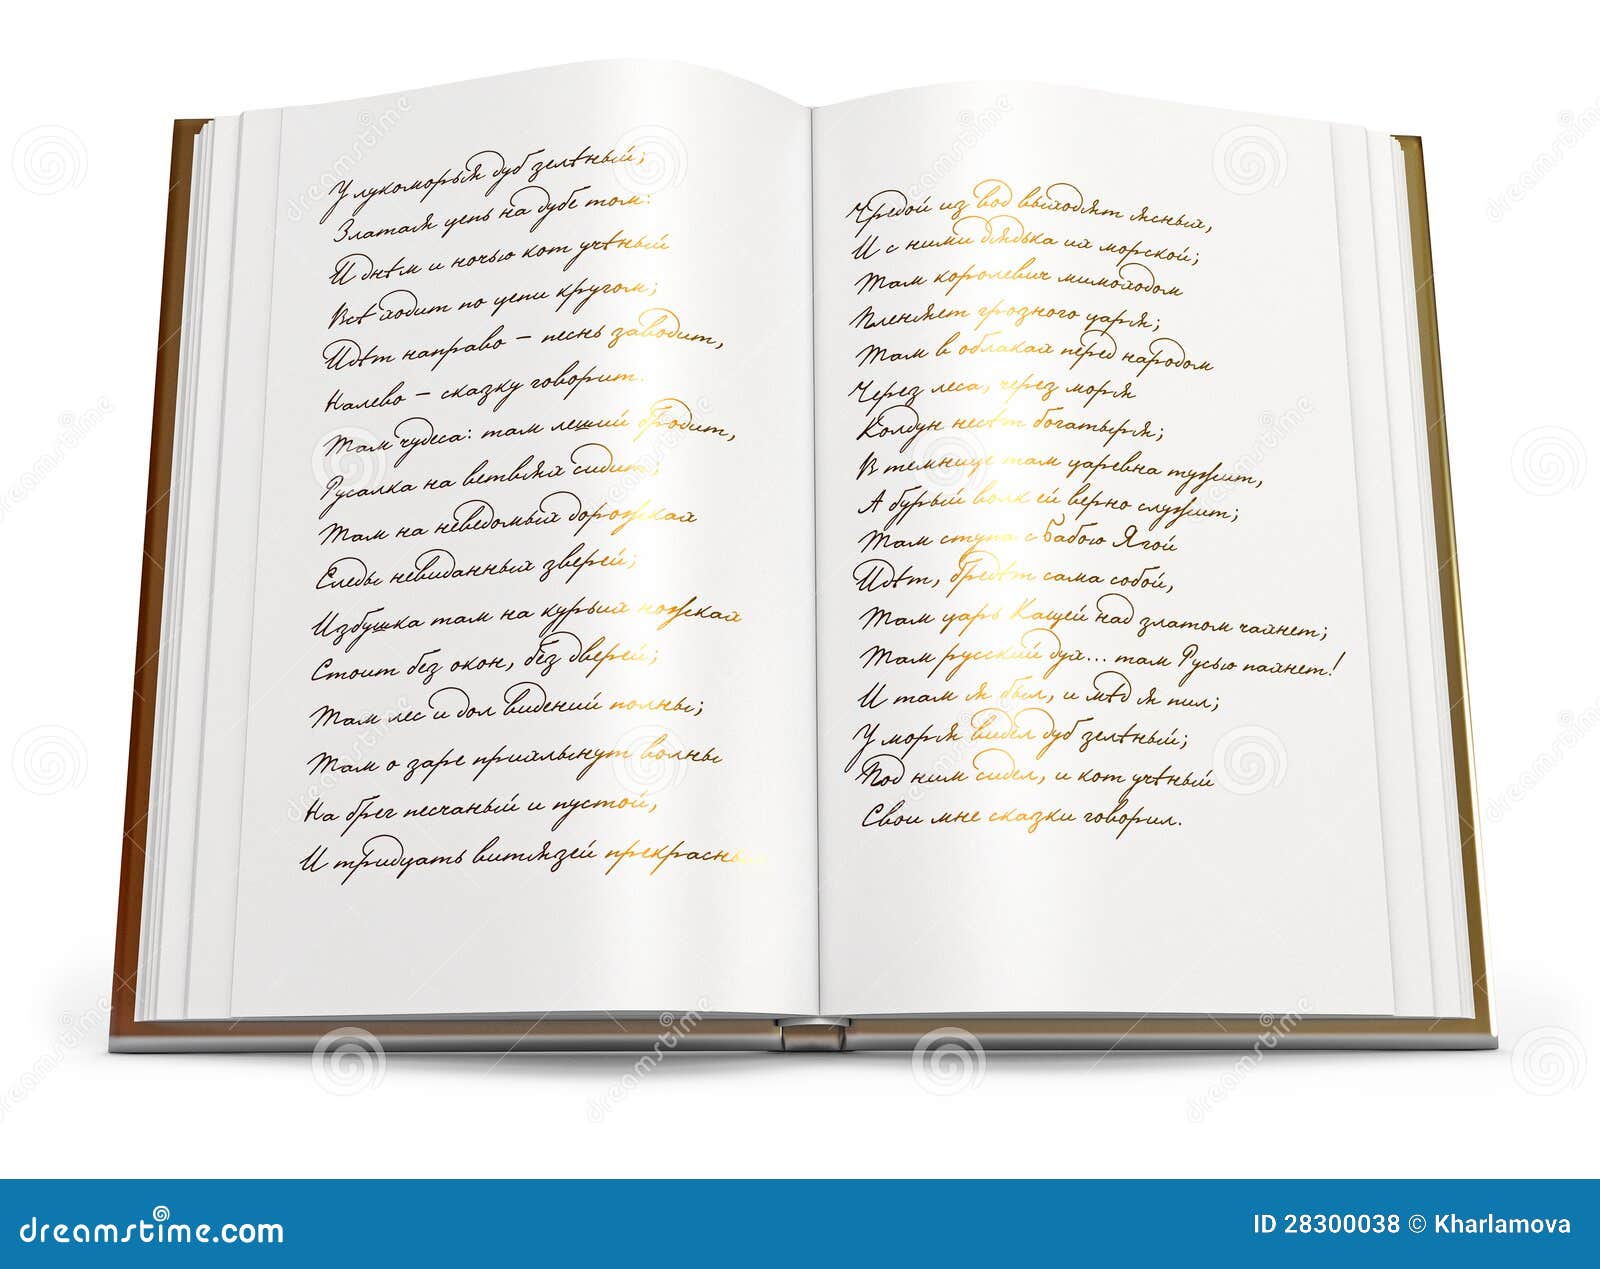 У лукоморья дуб зелёный;
Златая цепь на дубе том:
И днём и ночью кот учёный
Всё ходит по цепи кругом;
Идёт направо – песнь заводит,
Налево – сказку говорит.
Там чудеса: там леший бродит,
Русалка на ветвях сидит;
Там на неведомых дорожках
Следы невиданных зверей;
Избушка там на курьих ножках
Стоит без окон, без дверей;
Там лес и дол видений полны;
Там о заре прихлынут волны
На брег песчаный и пустой,
И тридцать витязей прекрасных
Чредой из вод выходят ясных,
И с ними дядька их морской;
Там королевич мимоходом
Пленяет грозного царя;
Там в облаках перед народом
Через леса, через моря
Колдун несёт богатыря;
В темнице там царевна тужит,
А бурый волк ей верно служит;
Там ступа с Бабою Ягой
Идёт, бредёт сама собой,
Там царь Кащей над златом чахнет;
Там русский дух... там Русью пахнет!
И там я был, и мёд я пил;
У моря видел дуб зелёный;
Под ним сидел, и кот учёный
Свои мне сказки говорил.
dreamstime.com
ID 28300038 © Kharlamova